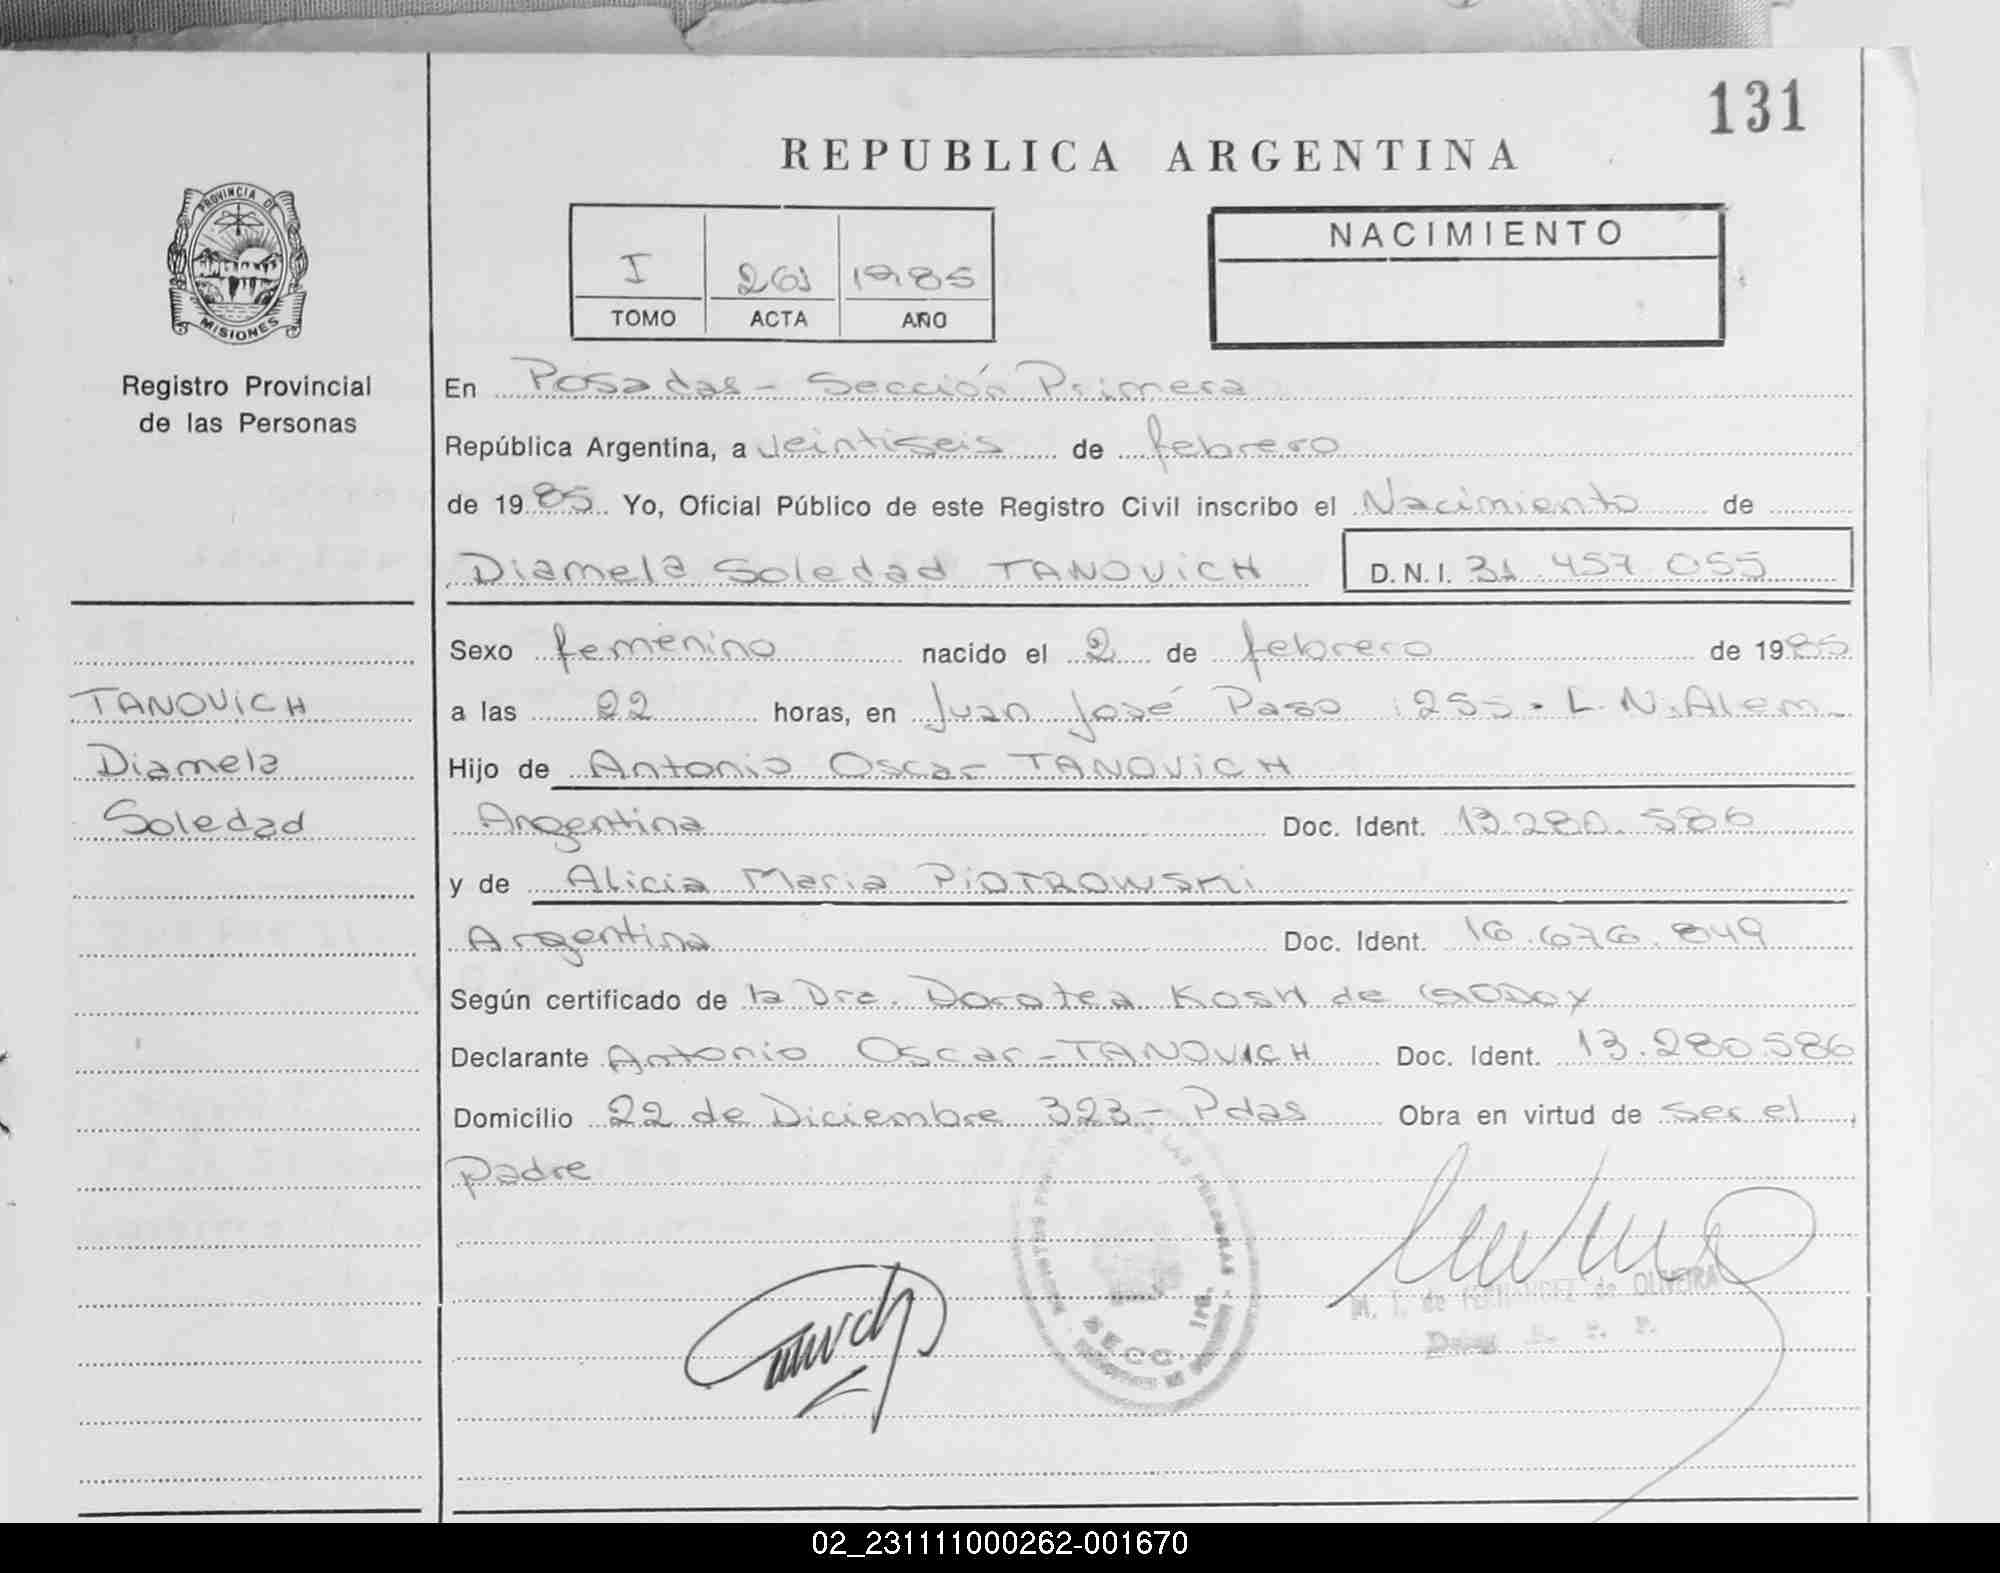 131
REPUBLICA ARGENTINA
PROVINCIA DE
MISIONES
Registro Provincial
de las Personas
I 261 1985
TOMO ACTA AÑO
NACIMIENTO
En Posadas - Sección Primera
República Argentina, a veintiseis de febrero
de 1985 Yo, Oficial Público de este Registro Civil inscribo el Nacimiento de
Diamela Soledad TANOVICH D.N.I. 31.457.055
Sexo femenino nacido el 2 de febrero de 1985
a las 22 horas, en Juan José Paso 255 - L.N.Alem-
TANOVICH
Diamela
Soledad
Hijo de Antonio Oscar TANOVICH
Argentina Doc. Ident. 13.280.586
y de Alicia Maria PIOTROWSKI
Argentina Doc. Ident. 16.676.849
Según certificado de la Dra. Dorotea KOSH de GODOY
Declarante Antonio Oscar-TANOVICH Doc. Ident. 13.280.586
Domicilio 22 de Diciembre 323- Pdas Obra en virtud de ser el
padre
LAS PERSONAS
SECC. 1RA.
M. I. de FERNANDEZ de OLIVEIRA
02_231111000262-001670